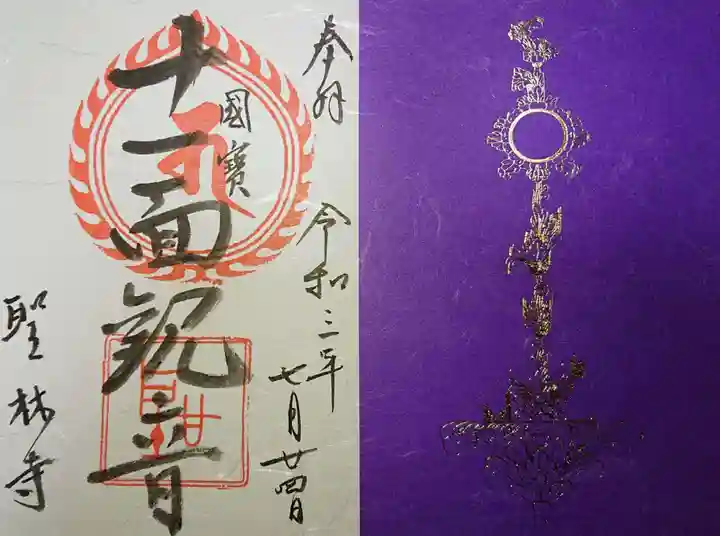 奉拝
令和三年
七月廿四日
國寳
十一面観音
聖林寺